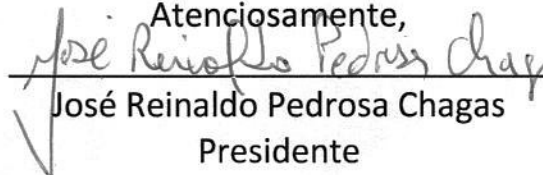 Atenciosamente,
José Reinaldo Pedrosa Chagas
José Reinaldo Pedrosa Chagas
Presidente